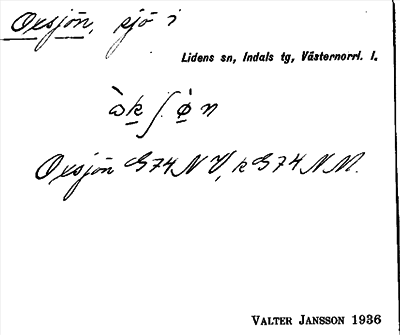 Oxsjön, sjö i
Lidens sn, Indals tg, Västernorrl. l.
ὼk∫ø̀n
Oxsjön G74NV, k G74NM.
VALTER JANSSON 1936